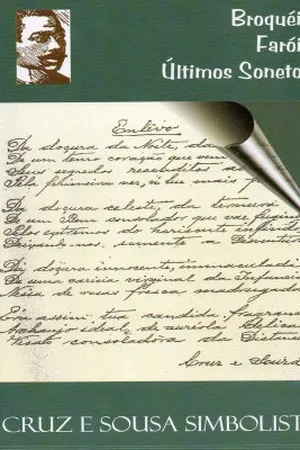 Broquéi
Farói
Últimos Soneto
Enlêvo
Da doçura da Noite, da
De um terno coração que vem
Seus segredos reconditos
Pela primeira vez, a luz mais
Da doçura celeste, da ternura
De um Bem consolador que vae
Pelos extremos do horizonte infindo
Deixando-nos, sómente a
Da doçura innocente, immaculada
De uma caricia virginal da Infancia
Nessa de rosas fresca madrugada
Era assim tua candida fragrancia
Archanjo ideal de auréola delicada
Visão consoladora da Distancia
Cruz e Souza
CRUZ E SOUSA SIMBOLIST